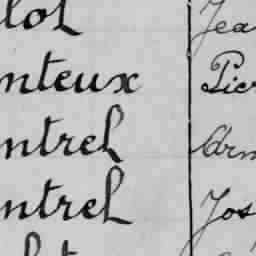 lot Jea
nteux Pier
ntrel Arm
ntrel Jos